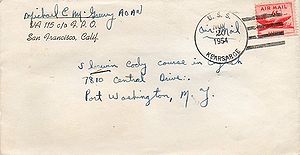 Michael C McGeary AOAN
VA 115 c/o F.P.O.
San Francisco, Calif.
U.S.S.
1954
KEARSARGE
Air Mail
AIR MAIL
6¢
course in
7810 Central Drive.
Port Washington, N. Y.